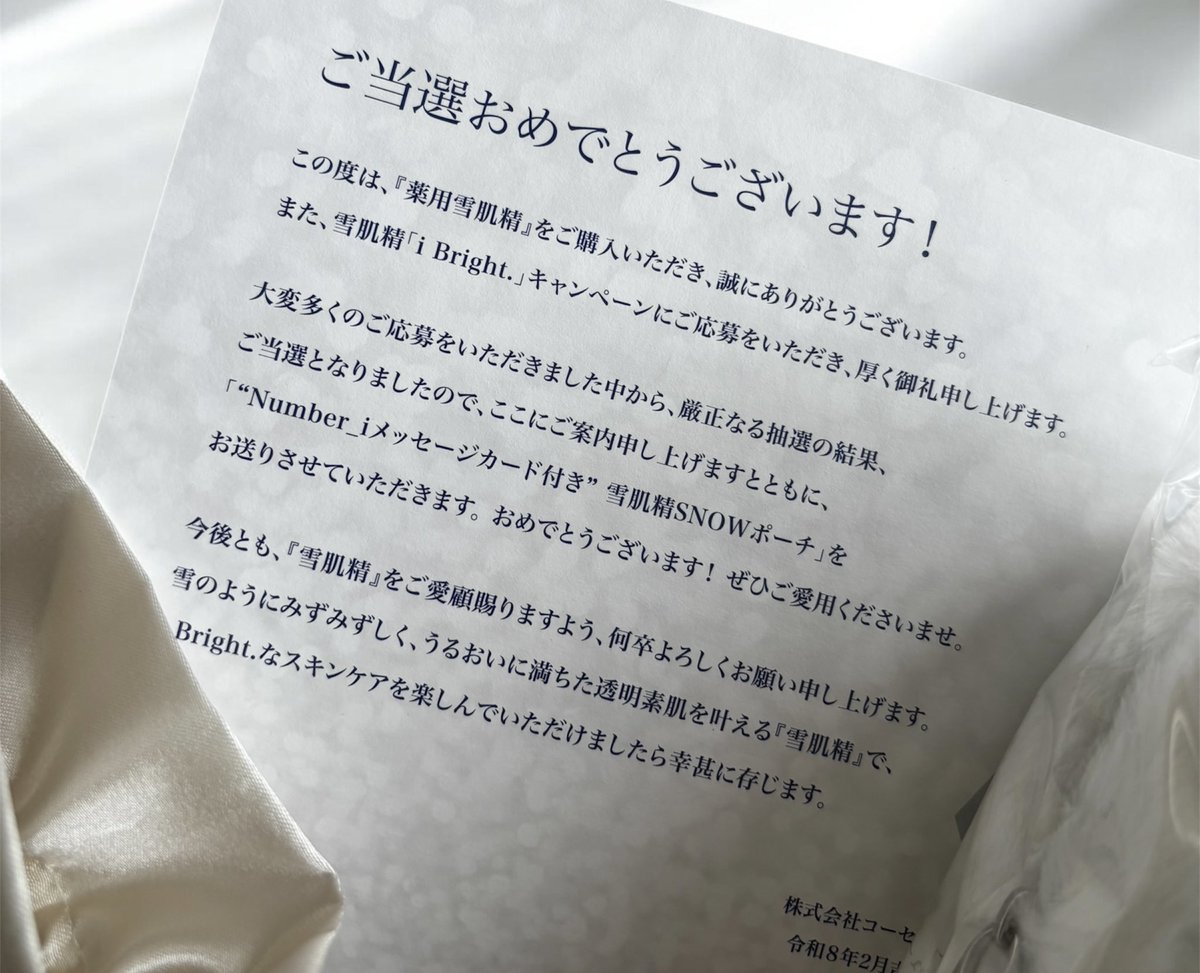 ご当選おめでとうございます！
この度は、『薬用雪肌精』をご購入いただき、誠にありがとうございます。
また、雪肌精「i Bright.」キャンペーンにご応募をいただき、厚く御礼申し上げます。
大変多くのご応募をいただきました中から、厳正なる抽選の結果、
ご当選となりましたので、ここにご案内申し上げますとともに、
「“Number_iメッセージカード付き” 雪肌精SNOWポーチ」を
お送りさせていただきます。おめでとうございます！ ぜひご愛用くださいませ。
今後とも、『雪肌精』をご愛顧賜りますよう、何卒よろしくお願い申し上げます。
雪のようにみずみずしく、うるおいに満ちた透明素肌を叶える『雪肌精』で、
Bright.なスキンケアを楽しんでいただけましたら幸甚に存じます。
株式会社コーセ
令和8年2月